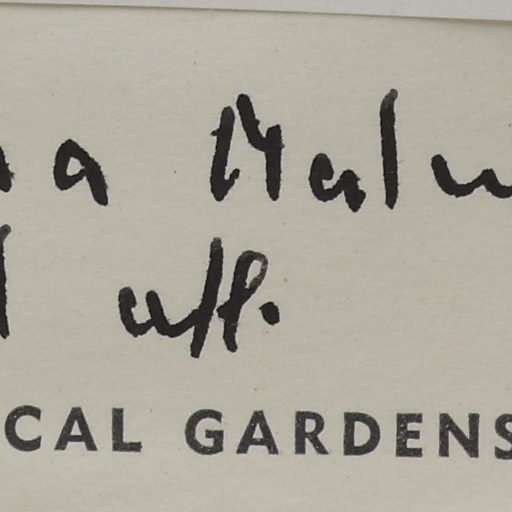 a Malu
aff.
CAL GARDENS